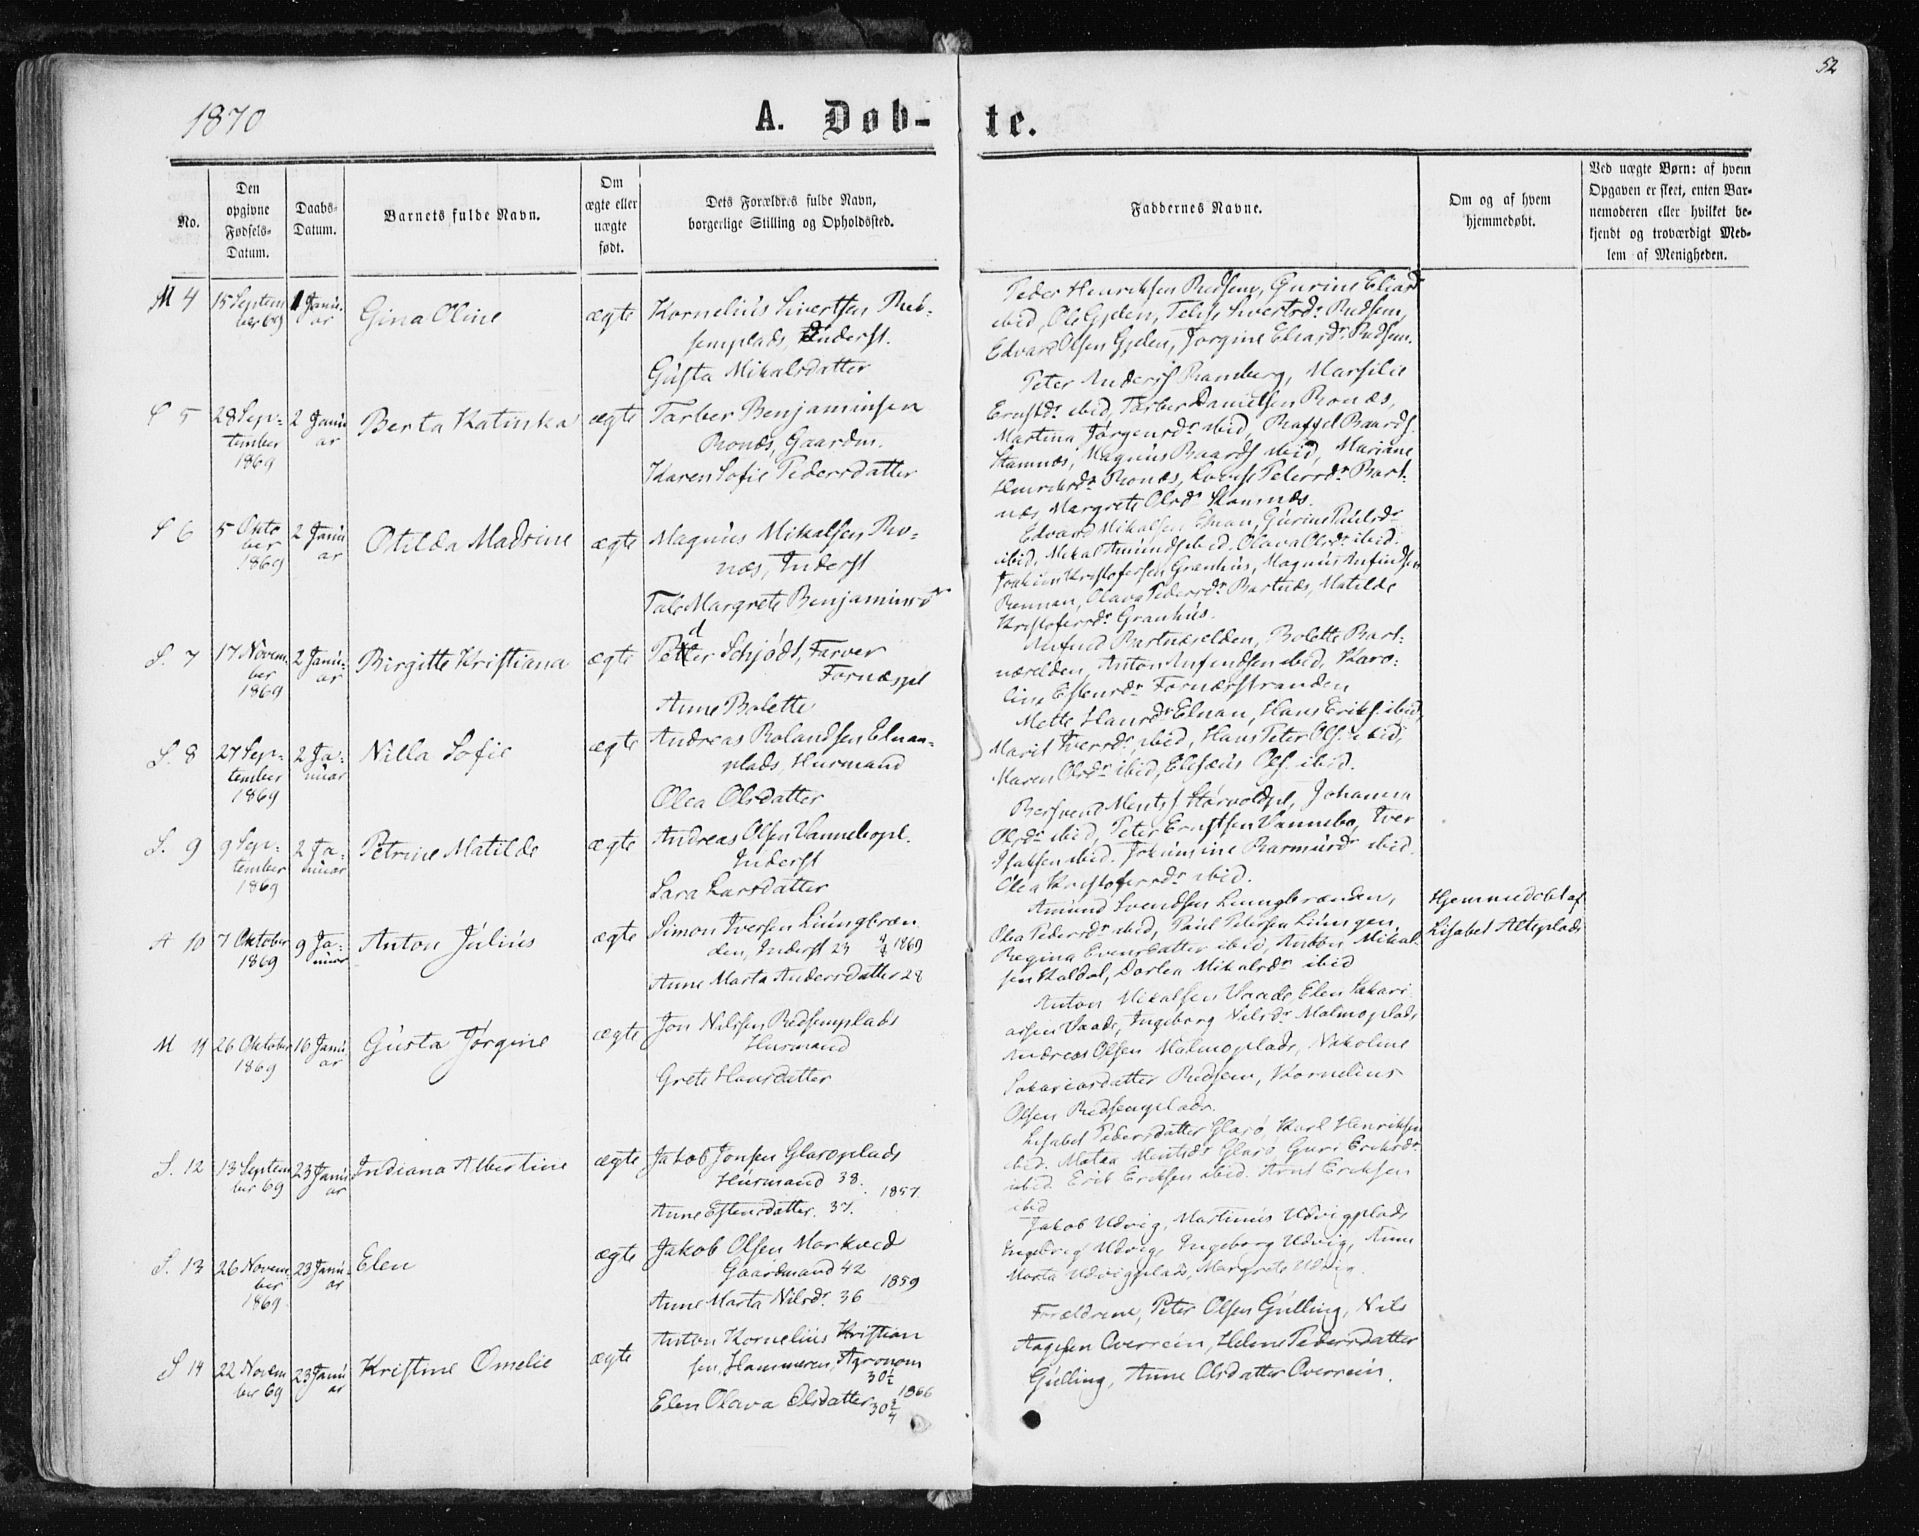 1870
A. Døb-
te.
52
No.
Den opgivne Fødsels-Datum.
Daabs-Datum.
Barnets fulde Navn.
Om ægte eller uægte født.
Dets Forældres fulde Navn, borgerlige Stilling og Opholdssted.
Faddernes Navne.
Om og af hvem hjemmedøbt.
Ved uægte Børn: af hvem
Opgaven er skeet, enten Bar-
nemoderen eller hvilket be-
kjendt og troværdigt Med-
lem af Menigheden.
M 4
15 Septem
ber 69
1 Janu-
ar
Gina Oline
ægte
Kornelius Sivertsen Red-
semplads, Inderst.
Gusta Mikalsdatter
Peder Henriksen Redsem, Gurine Eliasd
ibid, Ole Gjelen, Sivertsdr Redsem,
Edvard Olsen Gjelen, Jorgine Eliasdr Redsem.
S 5
28 Sep-
tember
1869
2 Janu
ar
Berta Katinka
ægte
Tarber Benjaminsen
Ronæs, Gaardm.
Karen Sofie Pedersdatter
Peter Anderss Ramberg, Marsilie
Ernstdr ibid, Tarber Danielsen Ronæs,
Martina Jørgensdr ibid, Baards
Stamnæs, Magnus Baards ibid, Mariane
Henriksdr Ronæs, Lovise Petersdr Bart-
næs Margrete Olsdr Stamnæs.
S 6
5 Okto
ber
1869
2 Janu
ar
Otilda Madsine
ægte
Magnus Mikalsen Ro-
næs, Inderst
Tale Margrete Benjaminsd
Edvard Mikalsen Elnan, Gurine Paulsdr
ibid, Mikal Amunds ibid, Olava Olsdr ibid.
Joakim Kristofersen Granhus, Magnus Anfindsen
Rennan, Olava Pedersdr Bartnæs, Matilde
Kristofersdr Granhus.
S. 7
17 Novem-
ber
1869
2 Janu-
ar
Birgitte Kristiana
ægte
Peder Schjødt, Farver
Fornæspl
Anne Bolette
Anfind Bartnæselden, Bolette Bart-
næselden, Anton Anfindsen ibid, Karo-
line Estensdr Fornæsstranden
S. 8
27 Sep-
tember
1869
2 Ja-
nuar
Nilla Sofie
ægte
Andreas Rolandsen Elnan-
plads, Husmand
Olea Olsdatter
Mette Hansdr Elnan, Hans Eriks. ibid,
Marit Iversdr ibid, Hans Peter Ols. ibid,
Maren Olsdr ibid, Elisæus Ols. ibid.
S. 9
9 Sep-
tember
1869
2 Ja-
nuar
Petrine Matilde
ægte
Andreas Olsen Vannebopl.
Inderst
Sara Larsdatter
Bersvend Ments. Størvoldpl, Johanna
Olsdr ibid, Peter Ernstsen Vannebo, Iver
Isaksen ibid. Rasmusdr ibid.
Olea Kristofersdr ibid.
A 10
7 Oktober
1869
9 Ja-
nuar
Anton Julius
ægte
Simon Iversen Liungbræn
den, Inderst 24 1869
Anne Marta Andersdatter 28
Amund Svendsen Liungbrænden,
Olea Pedersdr ibid, Paul Petersen Liungen,
Regina Evensdatter ibid, Anton Mikal-
sen Haldal, Dorlea Mikalsdr ibid
Hjemmedøbt af
Lisabet Alteplads
M 11
26 Oktober
1869
16 Janu
ar
Gusta Jørgine
ægte
Jon Nilsen Redsemplads
Husmand
Grete Hansdatter
Anton Mikalsen Vaade, Elen Sakari
assen Vaade, Ingeborg Nilsdr Malmoplads
Andreas Olsen Malmoplads, Nikoline
Sakariasdatter Redsem, Kornelius
Olsen Redsemplads.
S. 12
13 Septem
ber 69
23 Janu
ar
Indiana Albertine
ægte
Jakob Jonsen Glaroplads
Husmand 38.
1857
Anne Estensdatter. 37.
Lisabet Pedersdatter Glarø, Karl Henriksen
ibid. Matea Mentsdr Glarø, Guri Eriksdr
ibid. Erik Eriksen ibid. Arnt Eriksen
ibid
S. 13
26 Novem-
ber
1869
23 Janu-
ar
Elen
ægte
Jakob Olsen Morkved
Gaardmand 42
1859
Anne Marta Nilsdr. 36
Jakob Udvig, Martinus Udvigplads
Udvig, Ingeborg Udvig, Anne
Marta Udvigplads, Margrete Udvig.
S 14
22 Novem
ber 69
23 Janu
ar
Kristine Omelie
ægte
Anton Kornelius Kristian
sen, Hammeren, Agronom
30½
1866
Elen Olava Olsdatter 30¾
Forældrene, Peter Olsen Gulling, Nils
Aagesen Overrein, Helene Pedersdatter
Gulling, Anne Olsdatter Overrein.